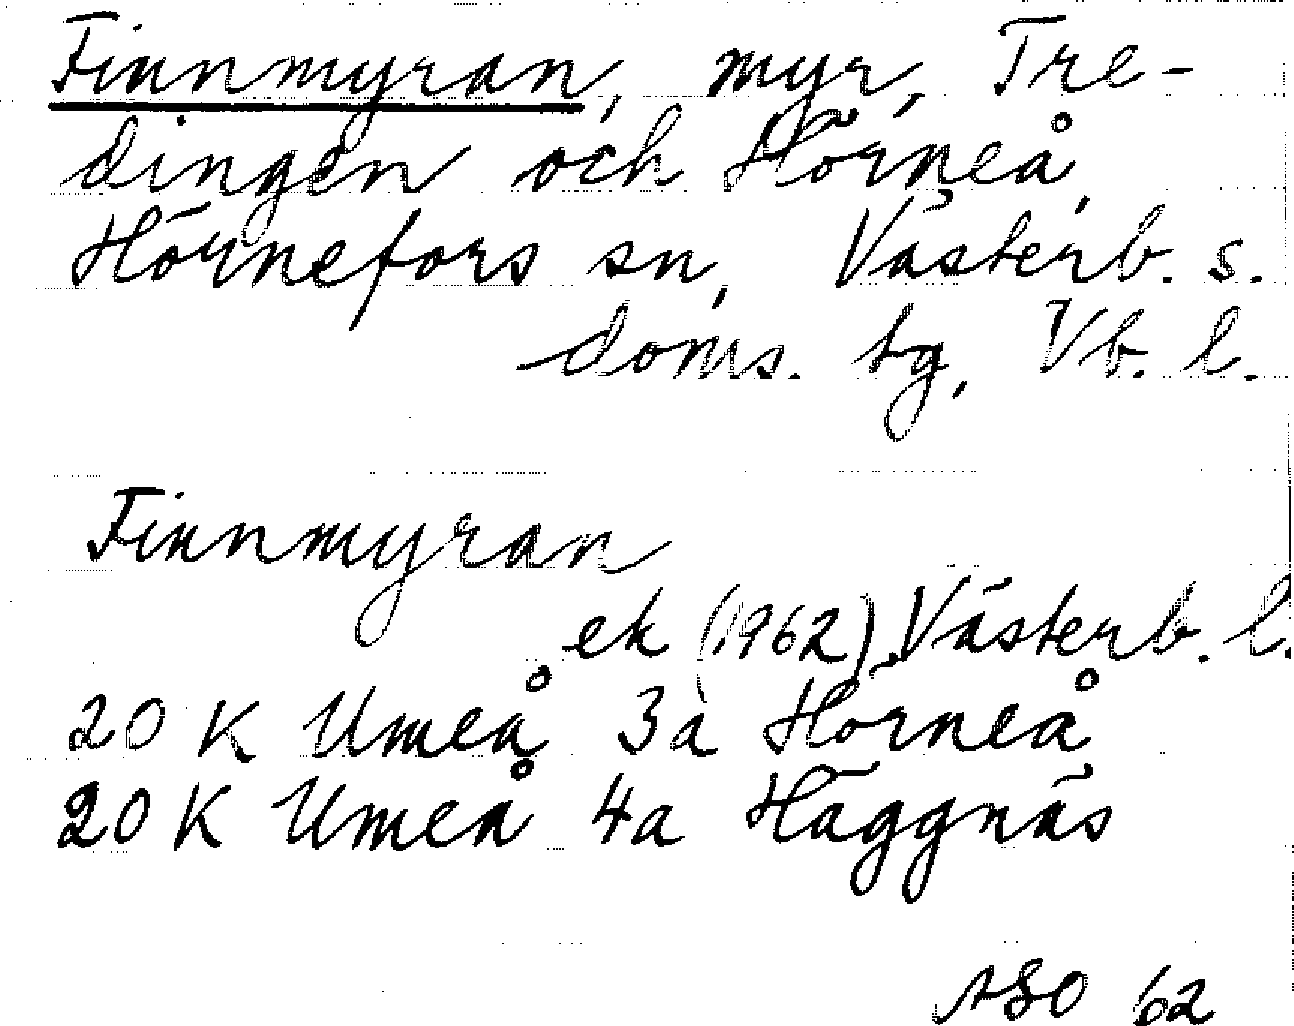 Finnmyran, myr, Tre-
dingen och Hörneå,
Hörnefors sn, Västerb. s.
doms. tg, Vb. l.
Finnmyran
ek (1962), Västerb. l.
20 K Umeå 3a Hörneå
20 K Umeå 4a Häggnäs
ASO 62